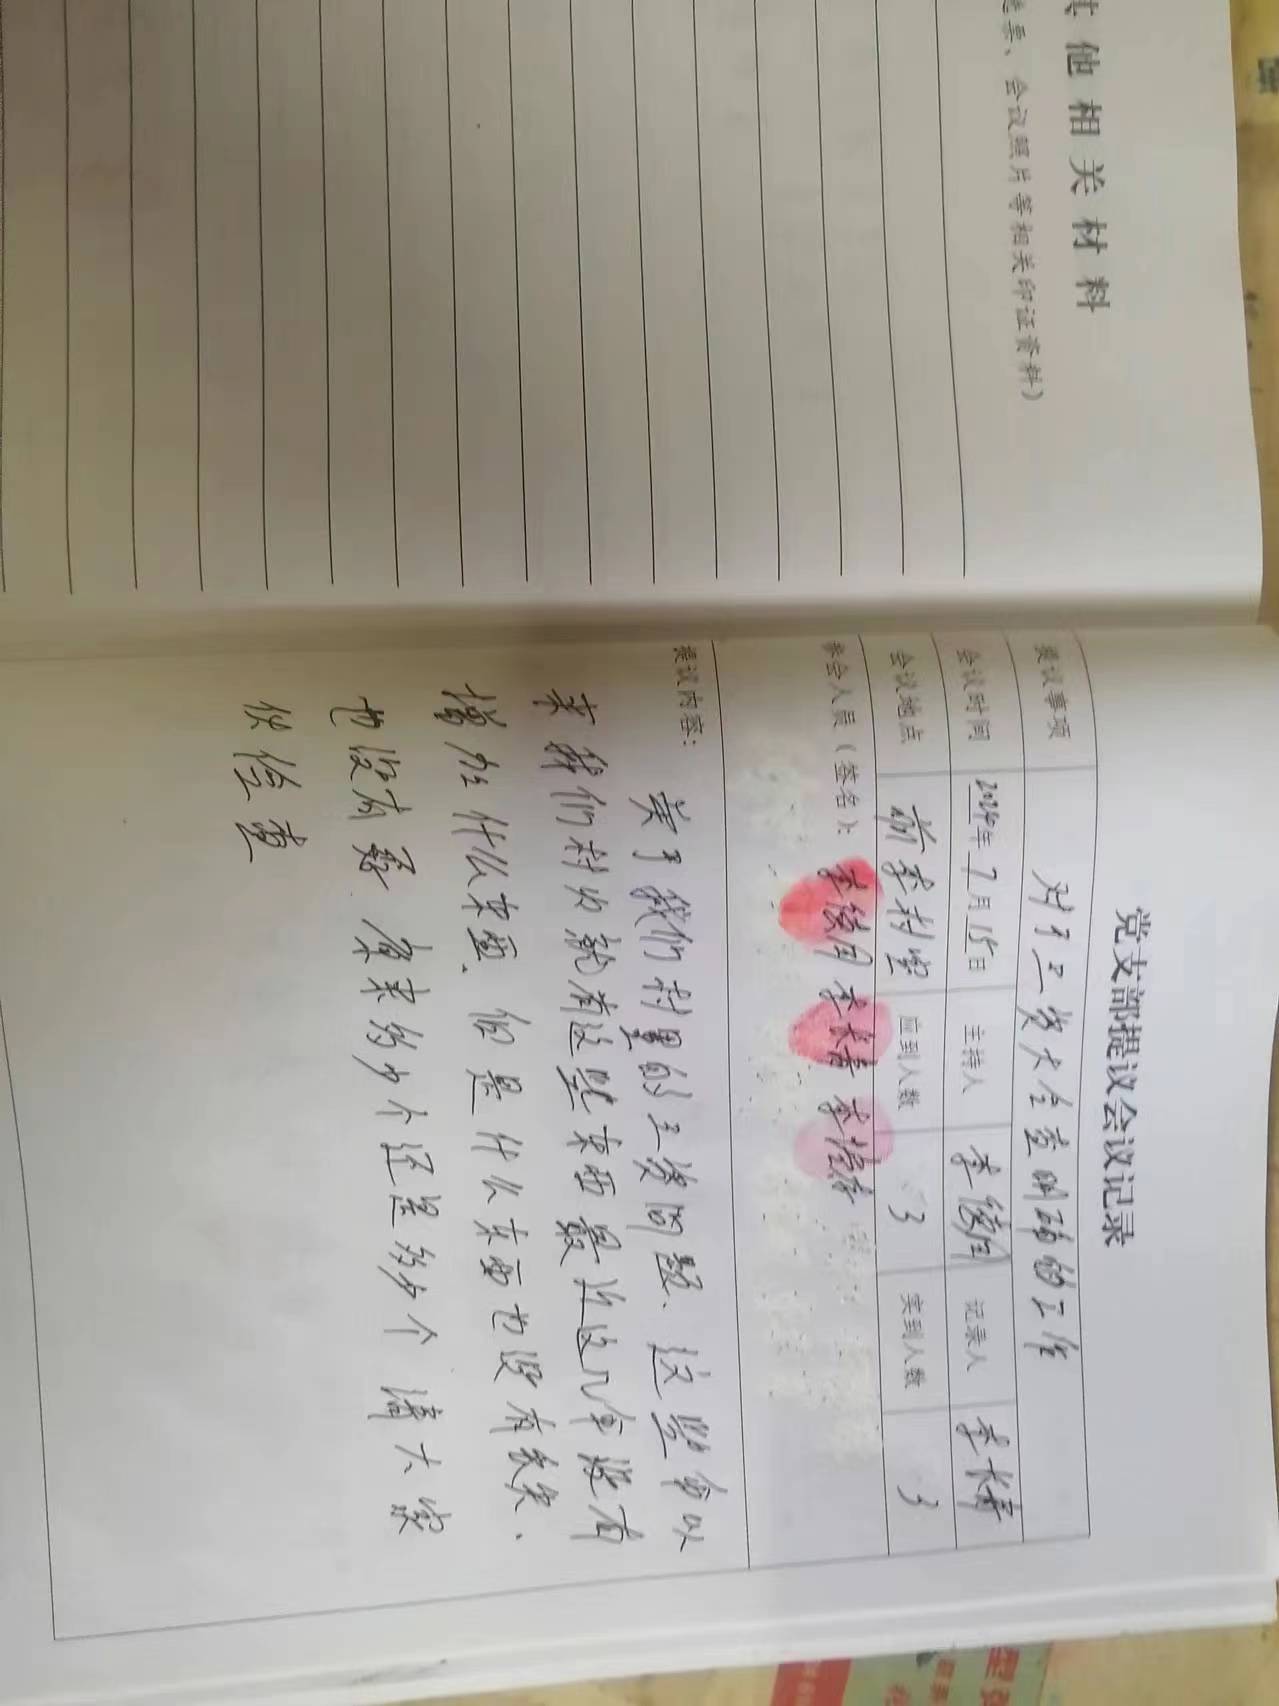 其他相关材料
选票、会议照片等相关印证资料）
党支部提议会议记录
提议事项 对于三资大全查明确的工作
会议时间 2024年7月15日 主持人 李绫月 记录人 李长青
会议地点 前李村室 应到人数 3 实到人数 3
参会人员（签名）： 李绫月 李长青
提议内容：
关于我们村里的三资问题、这些年以
来我们村为就有这些东西最近这几年没有
增加什么东西、但是什么东西也没有丢失、
也没有 原来多少个还是多少个 请大家
伙检查